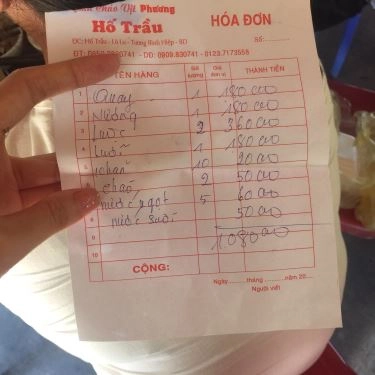 Quán Cháo Vịt Phương
Hố Trầu
HÓA ĐƠN
ĐC: Hố Trầu - Lò Lu - Tương Bình Hiệp - BD
Số:
ĐT: - DD: 0909.830741 - 0123.7173558
TÊN HÀNG Số lượng Giá đơn vị THÀNH TIỀN
1 Quay 1 180 000
2 Nướng 1 180 000
3 Luộc 2 360 000
4 Lưỡi 1 180 000
5 10 20 000
6 cháo 2 50 000
nước ngọt 5 60 000
8 nước suối 50 000
9 1080 000
10
CỘNG:
Ngày.........tháng.........năm 20....
Người viết